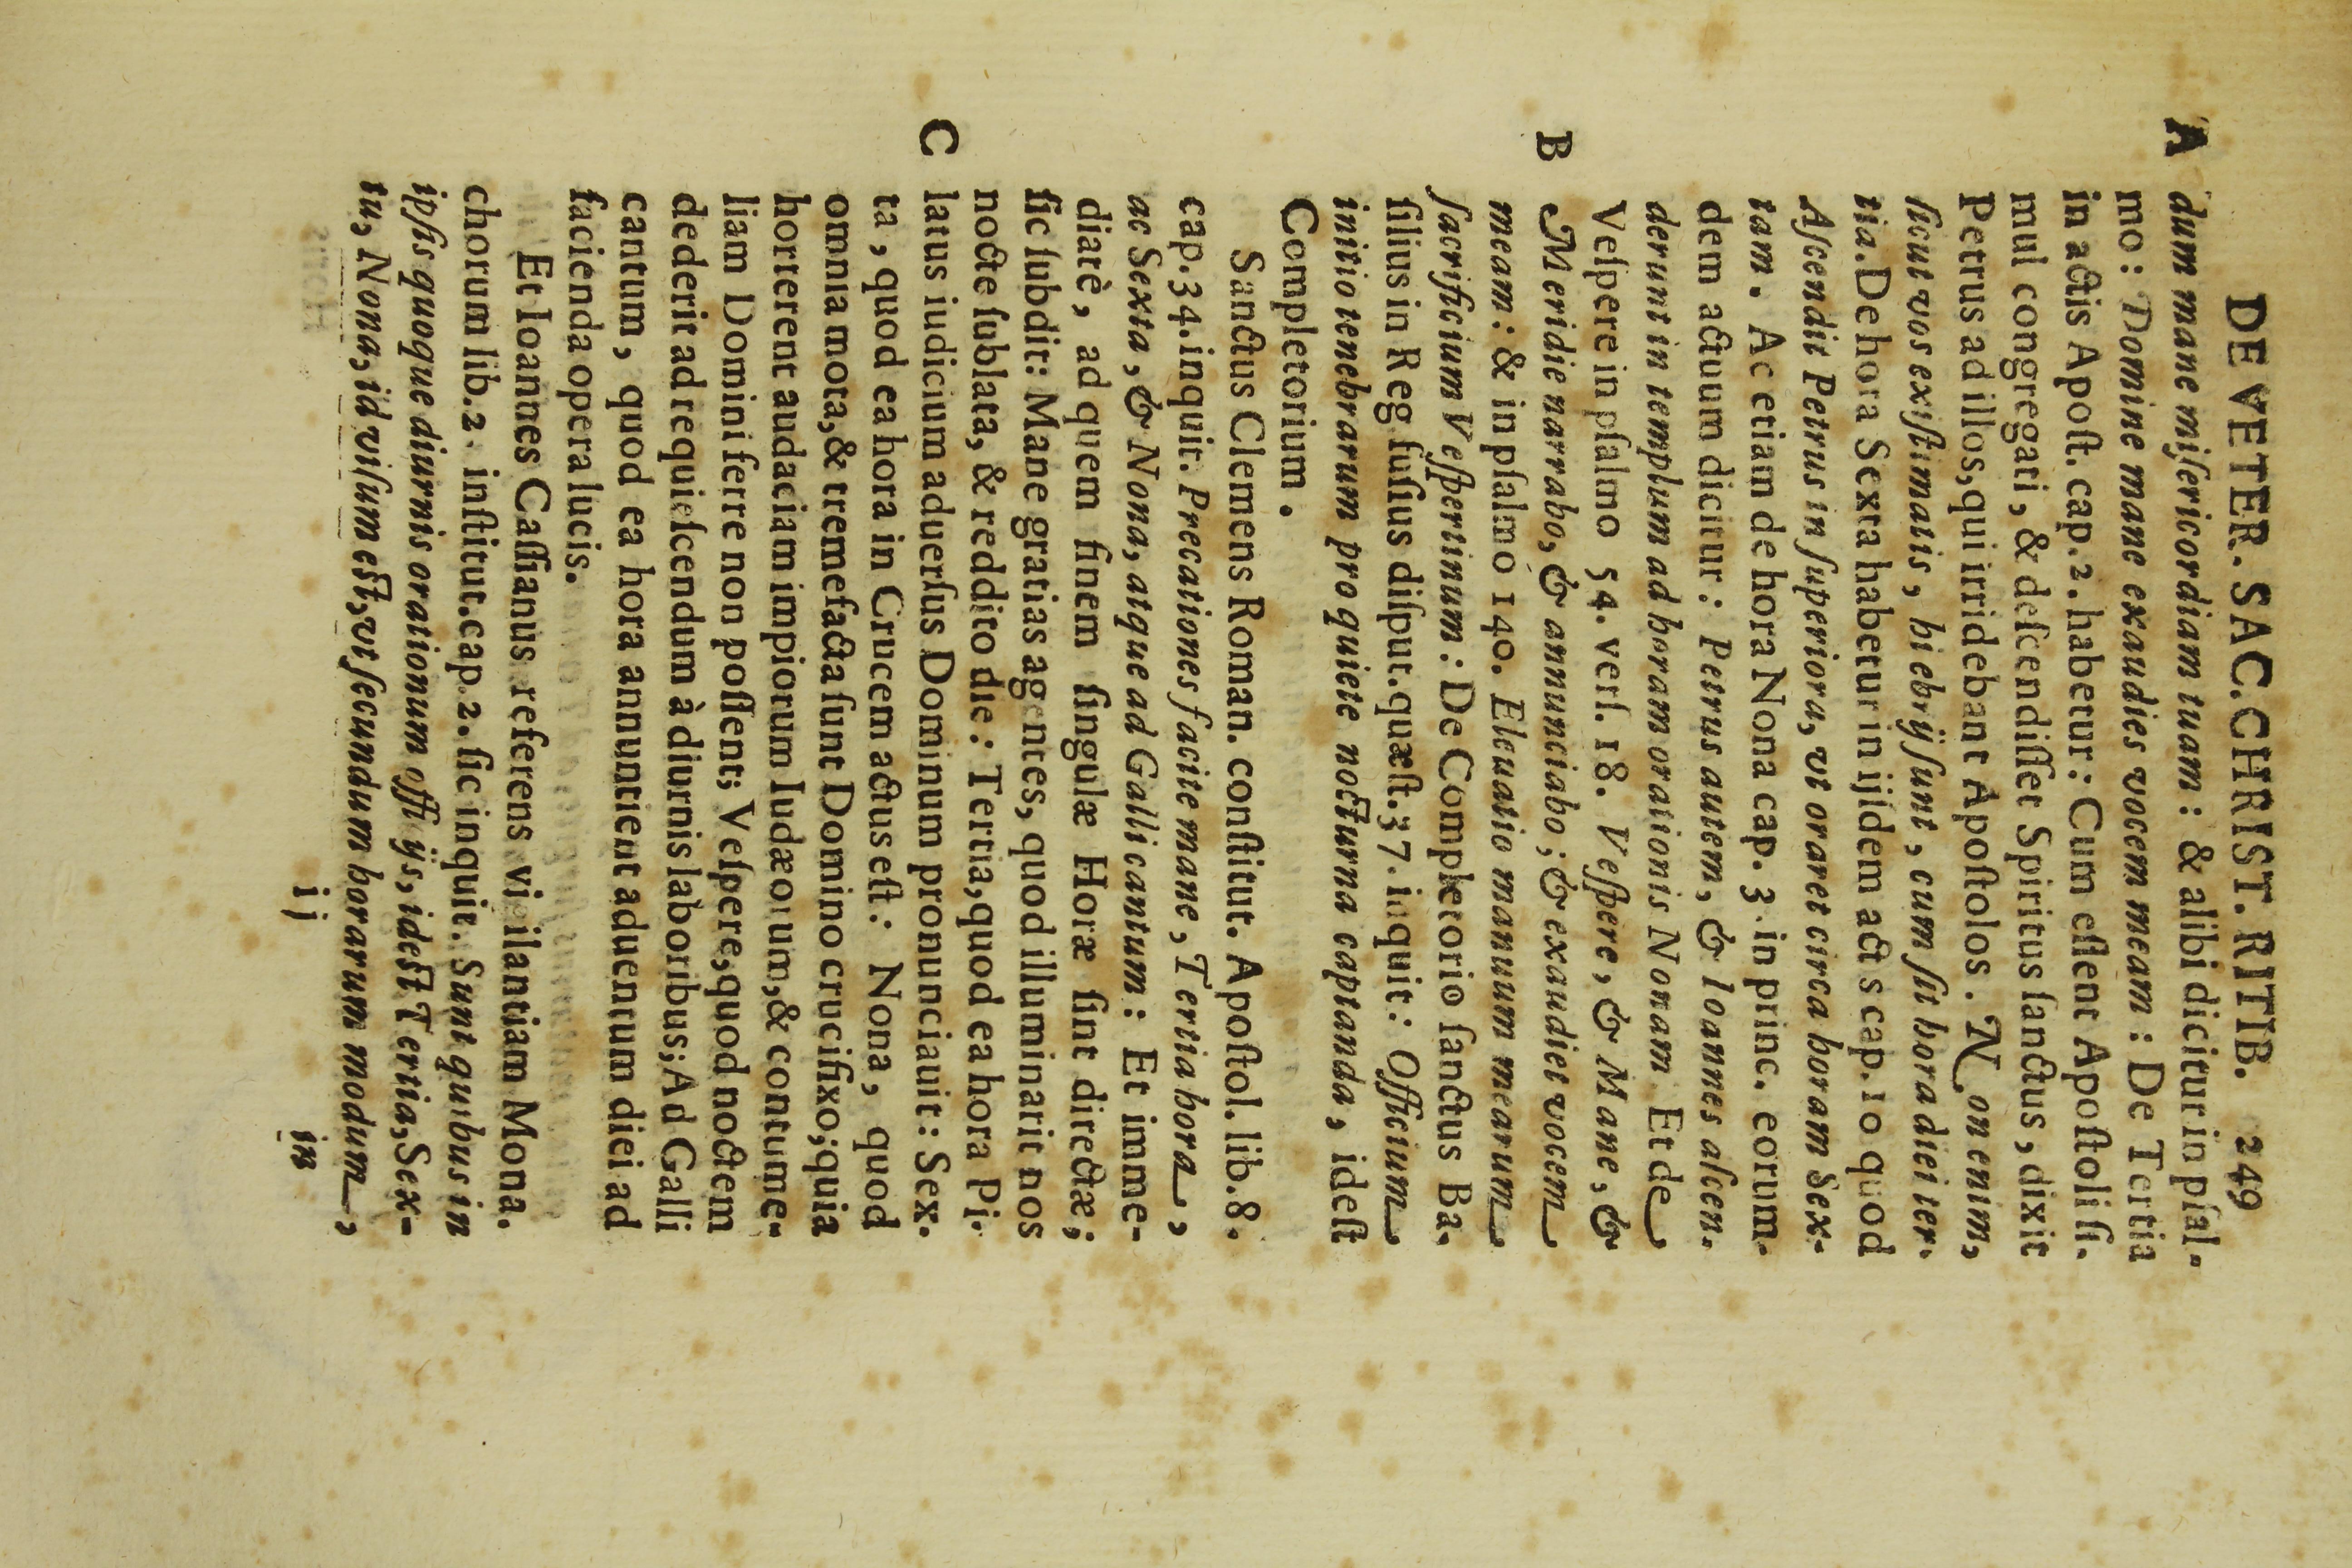 DE VETER. SAC. CHRIST. RITIB. 249
A dum mane miſericordiam tuam: & alibi dicitur in pſal-
mo: Domine mane exaudies vocem meam: De Tertia
in actis Apoſt. cap. 2. habetur: Cum eſſent Apoſtoli ſi-
mul congregati, & deſcendiſſet Spiritus ſanctus, dixit
Petrus ad illos, qui irridebant Apoſtolos. Non enim,
ſicut vos exiſtimatis, hi ebrij ſunt, cum ſit hora diei ter-
tia. De hora Sexta habetur in ijſdem act s cap. 10 quod
Aſcendit Petrus in ſuperiora, vt oraret circa horam Sex-
tam. Ac etiam de hora Nona cap. 3. in princ. eorum-
dem actuum dicitur: Petrus autem, & Ioannes aſcen-
derunt in templum ad horam orationis Nonam Et de
Veſpere in pſalmo 54. verſ. 18. Veſpere, & Mane, &
B Meridie narrabo, & annunciabo; & exaudiet vocem
meam: & in pſalmo 140. Eleuatio manuum mearum
ſacrificium Veſpertinum: De Completorio ſanctus Ba-
ſilius in Reg fuſius diſput. quæſt. 37. inquit: Officium
initio tenebrarum pro quiete nocturna captanda, ideſt
Completorium.
Sanctus Clemens Roman. conſtitut. Apoſtol. lib. 8.
cap. 34. inquit. Precationes facite mane, Tertia hora,
ac Sexta, & Nona, atque ad Galli cantum: Et imme-
diatè, ad quem finem ſingulæ Horæ ſint directæ;
ſic ſubdit: Mane gratias agentes, quod illuminarit nos
nocte ſublata, & reddito die: Tertia, quod ea hora Pi-
C latus iudicium aduerſus Dominum pronunciauit: Sex-
ta, quod ea hora in Crucem actus eſt: Nona, quod
omnia mota, & tremefacta ſunt Domino crucifixo; quia
horrerent audaciam impiorum Iudæorum, & contume-
liam Domini ferre non poſſent; Veſpere, quod noctem
dederit ad requieſcendum à diurnis laboribus; Ad Galli
cantum, quod ea hora annuntient aduentum diei ad
facienda opera lucis.
Et Ioannes Caſſianus referens vi ilantiam Mona-
chorum lib. 2. inſtitut. cap. 2. ſic inquit. Sunt quibus in
ipſis quoque diurnis orationum officijs, ideſt Tertia, Sex-
ta, Nona, id viſum eſt, vt ſecundum horarum modum,
i i in